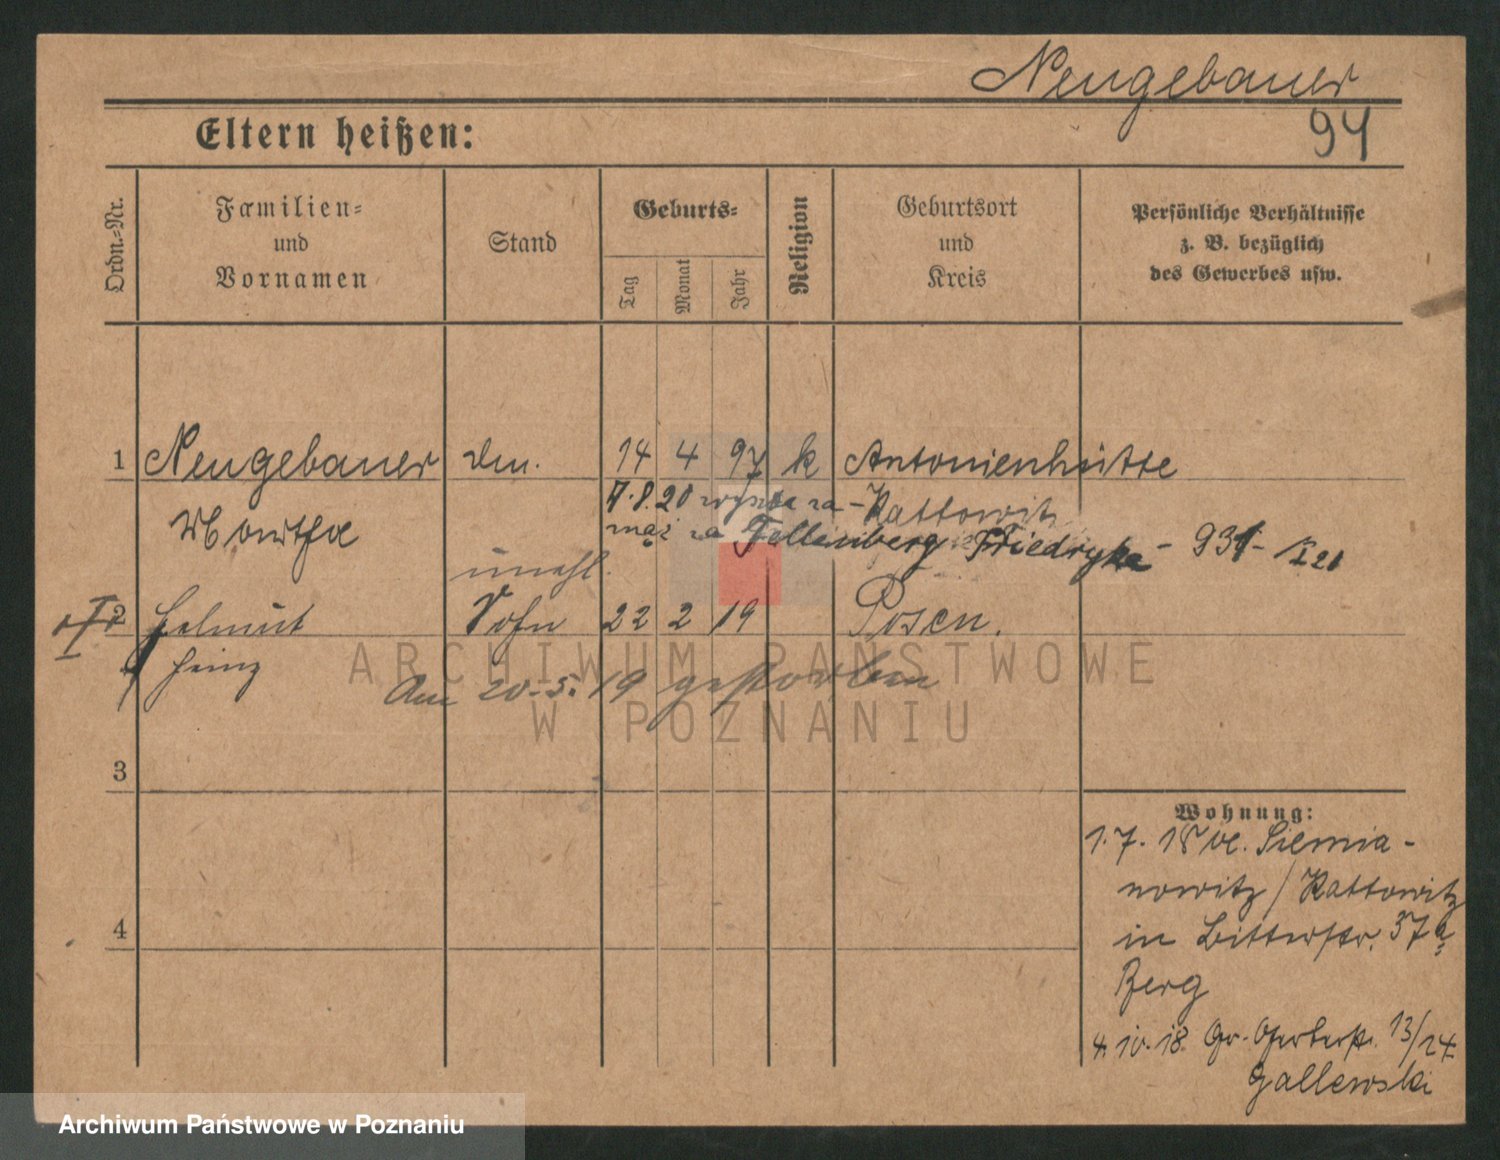 Neugebauer
94
Eltern heißen:
Ordn.-Nr.
Familien-
und
Vornamen
Stand
Geburts-
Tag
Monat
Jahr
Religion
Geburtsort
und
Kreis
Persönliche Verhältnisse
z. B. bezüglich
des Gewerbes usw.
1 Neugebauer 14 4 97 k Antonienhütte
7.8.20 wyszła za - Kattowitz
Martha
mąż za Fellenberg Friedryka - 931 - I 21
unehl.
2 Helmut Sohn 22 2 19 Posen.
Heinz
Am 20.5.19 gestorben
ARCHIWUM PAŃSTWOWE
W POZNANIU
3
4
Wohnung:
1.7.18 v. Siemia-
nowitz / Kattowitz
in Bitterstr. 37a
Berg
4.10.18 Gr. Gerberstr. 13/24
Gallewski
Archiwum Państwowe w Poznaniu